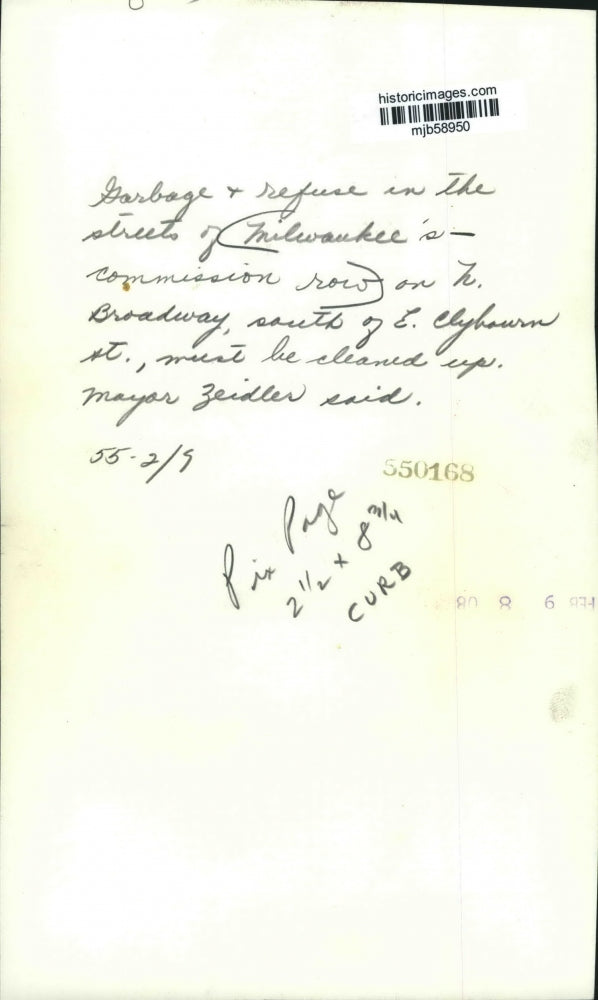 historicimages.com
mjb58950
Garbage + refuse in the
streets of Milwaukee's -
commission row on N.
Broadway, south of E. Clybourn
st., must be cleaned up.
Mayor Zeidler said.
55-2/9
550168
Pix Page
2 1/2 x 8
CURB
FEB 9 8 08